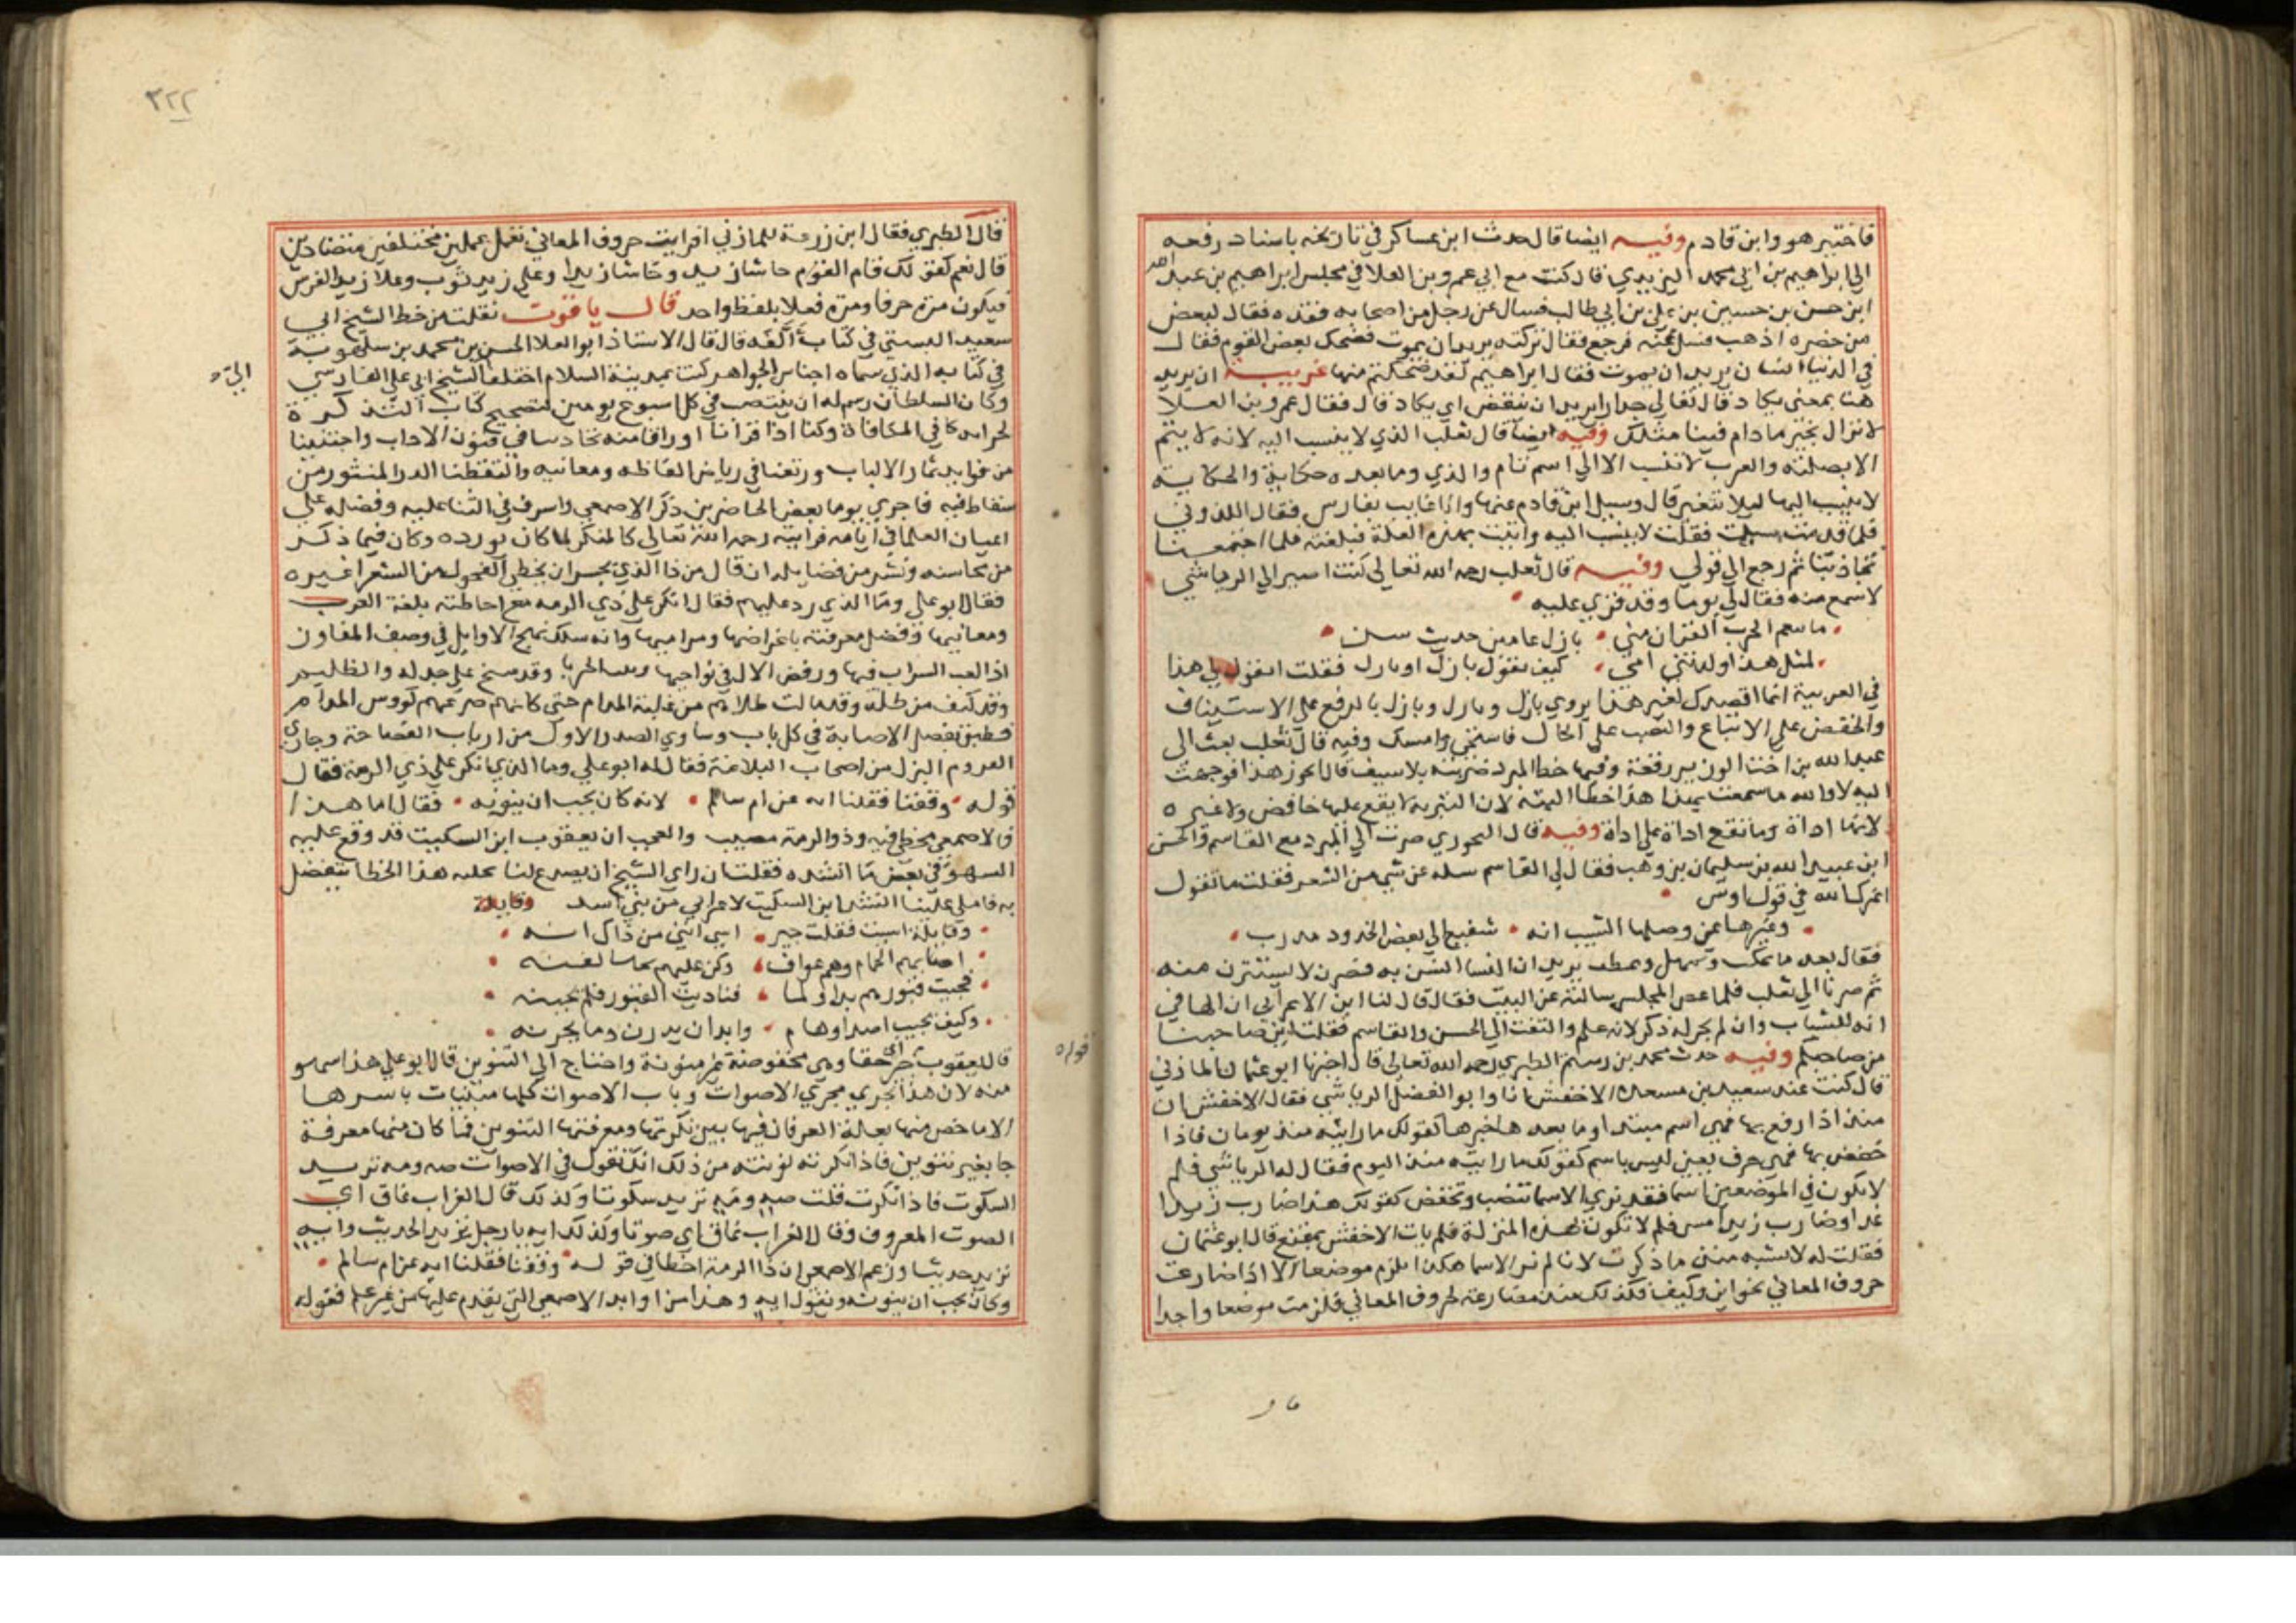 فاختبر هو وابن قادم وفيه ايضا قال حدث ابن عساكر في تاريخه باسناد رفعه
الي ابراهيم بن ابي محمد اليزيدي قال كنت مع ابي عمرو بن العلا في مجلس ابراهيم بن عبد الله
ابن حسن بن حسين بن علي بن ابي طالب فسال عن رجل من اصحابه فقده فقال لبعض
من حضره اذهب فسل عنه فرجع فقال تركته يريد ان يموت فضحك بعض القوم فقال
في الدنيا انسان يريد ان يموت فقال ابراهيم لقد ضحكتم منها غريبة ان يريد
هنا بمعني يكاد قال تعالي جدارا يريد ان ينقض اي يكاد قال فقال عمرو بن العلا
لا نزال بخير مادام فينا مثلك وفيه ايضا قال ثعلب الذي لا ينسب اليه لانه لا يتم
الا بصلته والعرب لا تنسب الا الي اسم تام والذي وما بعده حكاية والحكاية
لا ينسب اليها ليلا تتغير قال وسيل ابن قادم عنها وانا غايب بفارس فقال اللذوني
فلما قدمت سيلت فقلت لا ينسب اليه واتيت بهذه العلة فبلغته فلما اجتمعنا
تجاذبنا ثم رجع الي قولي وفيه قال ثعلب رحمه الله تعالي كنت اسير الي الرياشي
لاسمع منه فقال لي يوما وقد قري عليه
ما تنقم الحرب العوان مني بازل عامين حديث سن
لمثل هذا ولدتني امي كيف تقول بازل او بازل فقلت اتقول لي هذا
في العربية انما اقصدك لغير هذا يروي بازل وبازل وبازل بالرفع علي الاستيناف
والخفض علي الاتباع والنصب علي الحال فاستحي وامسك وفيه قال ثعلب بعث الي
عبد الله بن اخت الوزير رقعة وفيها خط المبرد ضربته بلا سيف قال ايجوز هذا فوجهت
اليه لا والله ما سمعت بهذا هذا خطا البتة لان التبرية لا يقع عليها خافض ولا غيره
لانها اداة وما تقع اداة علي اداة وفيه قال صرت الي المبرد مع القاسم والحسن
ابن عبيد الله بن سليمان بن وهب فقال لي القاسم سله عن شي من الشعر فقلت ما تقول
اعزك الله في قول اوس
وغيرها عن وصلها الشيب انه شفيع الي بعض الخدود مدرب
فقال بعد ما تمكث وتمهل يريد ان النسا انسن به فصرن لا يستترن منه
ثم صرنا الي ثعلب فلما غص المجلس سالته عن البيت فقال قال لنا ابن الاعرابي ان الها في
انه للشباب وان لم يجر له ذكر لانه علم والتفت الي الحسن والقاسم فقلت اين صاحبنا
من صاحبكم وفيه حدث محمد بن رستم الطبري رحمه الله تعالي قال اخبرنا ابو عثمان المازني
قال كنت عند سعيد بن مسعدة الاخفش انا وابو الفضل الرياشي فقال الاخفش ان
منذ اذا رفع بها فهي اسم مبتدا وما بعدها خبرها كقولك ما رايته منذ يومان فاذا
خفض بها فهي حرف بمعني ليس باسم كقولك ما رايته منذ اليوم فقال له الرياشي فلم
لا يكون في الموضعين اسما فقد نري الاسما تنصب وتخفض كقولك هذا ضارب زيدا
غدا وضارب زيد امس فلم لا تكون بهذه المنزلة فلم يات الاخفش بمقنع قال ابو عثمان
فقلت له لا تشبه منذ ما ذكرت لانا لم نر الاسما هكذا تلزم موضعا الا اذا ضارعت
حروف المعاني نحو اين وكيف فكذلك منذ مضارعة لحروف المعاني فلزمت موضعا واحدا
قال
٣٢٢
قال الطبري فقال ابن زرعة للمازني افرايت حروف المعاني تعمل عملين مختلفين متضادين
قال نعم كقولك قام القوم حاشا زيد وحاشا زيدا وعلي زيد ثوب وعلا زيد الفرس
فيكون مرة حرفا ومرة فعلا بلفظ واحد قال ياقوت نقلت من خط الشيخ ابي
سعيد البستي في كتاب الفه قال قال الاستاذ ابو العلا الحسين بن محمد بن سلهوية
في كتابه الذي سماه اجناس الجواهر كنت بمدينة السلام اختلف الشيخ ابي علي الفارسي
الي
وكان السلطان رسم له ان ينتصب في كل اسبوع يومين لتصحيح كتاب التذكرة
لخزانة كافي الكفاة وكنا اذا قرانا اوراقا منه تجارينا في فنون الاداب واجتنينا
من فوايد ثمار الالباب ورتعنا في رياض الفاظه ومعانيه والتقطنا الدر المنثور من
سقاط فيه فاجري يوما بعض الحاضرين ذكر الاصمعي واسرف في الثنا عليه وفضله علي
اعيان العلما في ايامه فرايته رحمه الله تعالي كالمنكر لما كان يورده وكان فيما ذكر
من محاسنه ونشر من فضايله ان قال من ذا الذي يجسر ان يخطي الفحول من الشعرا غيره
فقال ابو علي وما الذي رد عليهم فقال انكر علي ذي الرمه مع احاطته بلغة العرب
ومعانيها وفضل معرفته باغراضها ومراميها وانه سلك نهج الاوايل في وصف المفاوز
اذا لعب السراب فيها ورقص الال في نواحيها الحربا وقد سنح علي جدله والظليم
وقد كيف من ظله وقد مالت طلاهم من غلبة المنام حتي كانهم صرعتهم كووس المدام
فطبق مفصل الاصابة في كل باب وساوي الصدر الاول من ارباب الفصاحة وجاري
القروم البزل من اصحاب البلاغة فقال له ابو علي وما الذي انكر علي ذي الرمة فقال
قوله وقفنا فقلنا ايه عن ام سالم لانه كان يجب ان ينونه فقال اما هذا
فالاصمعي مخطي فيه وذو الرمة مصيب والعجب ان يعقوب ابن السكيت قد وقع عليه
السهو في بعض ما انشده فقلت ان راي الشيخ ان يصدع لنا بجلية هذا الخطا تفضل
به فاملي علينا انشد ابن السكيت لاعرابي من بني اسد وقايلة
وقايلة اسيت فقلت جير اسي انني من ذاك انه
اصابهم الحمام وهم عواف وكن عليهم نحسا لعنه
فجيت قبورهم بدا ولما فناديت القبور فلم يجبنه
وكيف يجيب اصدا وهام وابدان بدرن وما نخرنه
قوله
قال يعقوب جير اي حقا وهي مخفوضة غير منونة واحتاج الي التنوين قال ابو علي هذا سهو
منه لان هذا يجري مجري الاصوات وباب الاصوات كلها مبنيات باسرها
الا ما خص منها بعلة الفرقان فيها بين نكرتها ومعرفتها التنوين فما كان منها معرفة
جا بغير تنوين فاذا نكرته نونته من ذلك انك تقول في الاصوات صه ومه تريد
السكوت فاذا نكرت قلت صه ومه تريد سكوتا وكذلك قال الغراب غاق اي
الصوت المعروف وقال الغراب غاق اي صوتا وكذلك ايه يا رجل تريد الحديث وايه
تريد حديثا وزعم الاصمعي ان ذا الرمة اخطا في قوله وقفنا فقلنا ايه عن ام سالم
وكان يجب ان ينونه ويقول ايه وهذا من اوابد الاصمعي التي يقدم عليها من غير علم فقوله